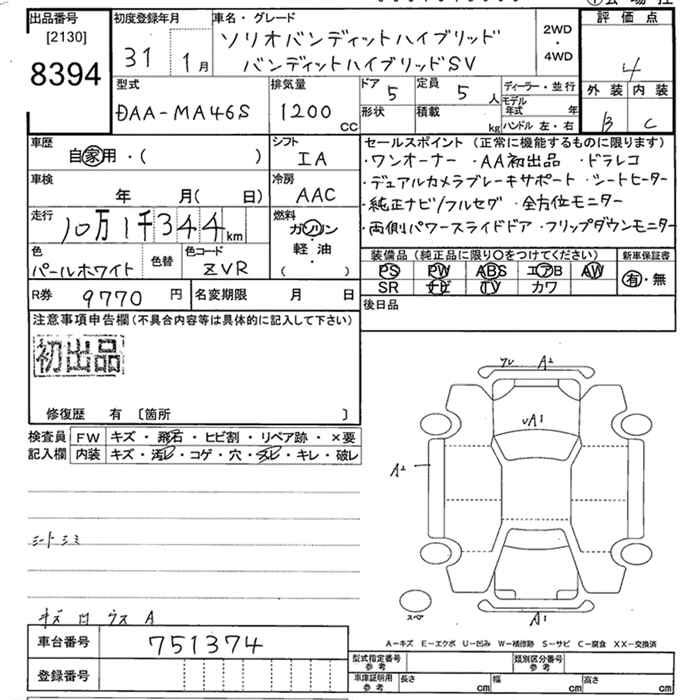 出品番号
[2130]
8394
初度登録年月
31 1月
車名・グレード
ソリオバンディットハイブリッド
バンディットハイブリッドSV
2WD
・
4WD
評価点
4
外装 内装
B C
型式
DAA-MA46S
排気量
1200
CC
ドア
5
定員
5
人
形状
積載
kg
ディーラー・並行
モデル
年式 年
ハンドル 左・右
車歴
自家用・( )
シフト
IA
車検
年 月( 日)
冷房
AAC
走行
10万1千344
km
燃料
ガソリン
軽油
( )
色
パールホワイト
色替
色コード
ZVR
R券
9770 円
名変期限 月 日
セールスポイント (正常に機能するものに限ります)
・ワンオーナー ・AA初出品 ・ドラレコ
・デュアルカメラブレーキサポート ・シートヒーター
・純正ナビ/フルセグ ・全方位モニター
・両側パワースライドドア ・フリップダウンモニター
装備品 (純正品に限り〇をつけてください)
新車保証書
PS PW ABS エアB AW
SR ナビ TV カワ
有・無
後日品
注意事項申告欄(不具合内容等は具体的に記入して下さい)
初出品
修復歴 有 〔箇所 〕
検査員
記入欄
FW キズ・飛石・ヒビ割・リペア跡・×要
内装 キズ・汚レ・コゲ・穴・スレ・キレ・破レ
シートシミ
A2
A1
A2
A1
スペア
車台番号
751374
登録番号
A-キズ E-エクボ U-凹み W-補修跡 S-サビ C-腐食 XX-交換済
型式指定番号
参考
類別区分番号
参考
車庫証明用
参考
長さ cm 幅 cm 高さ cm